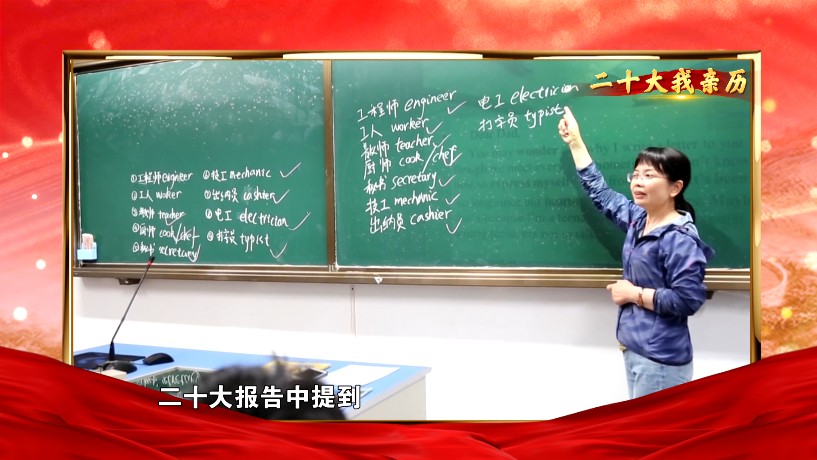 二十大我亲历
工程师 engineer
工人 worker
教师 teacher
厨师 cook/chef
秘书 secretary
技工 mechanic
出纳员 cashier
电工 electrician
打字员 typist
①工程师 engineer
②工人 worker
③教师 teacher
④厨师 cook/chef
⑤秘书 secretary
⑥技工 mechanic
⑦出纳员 cashier
⑧电工 electrician
⑨打字员 typist
二十大报告中提到